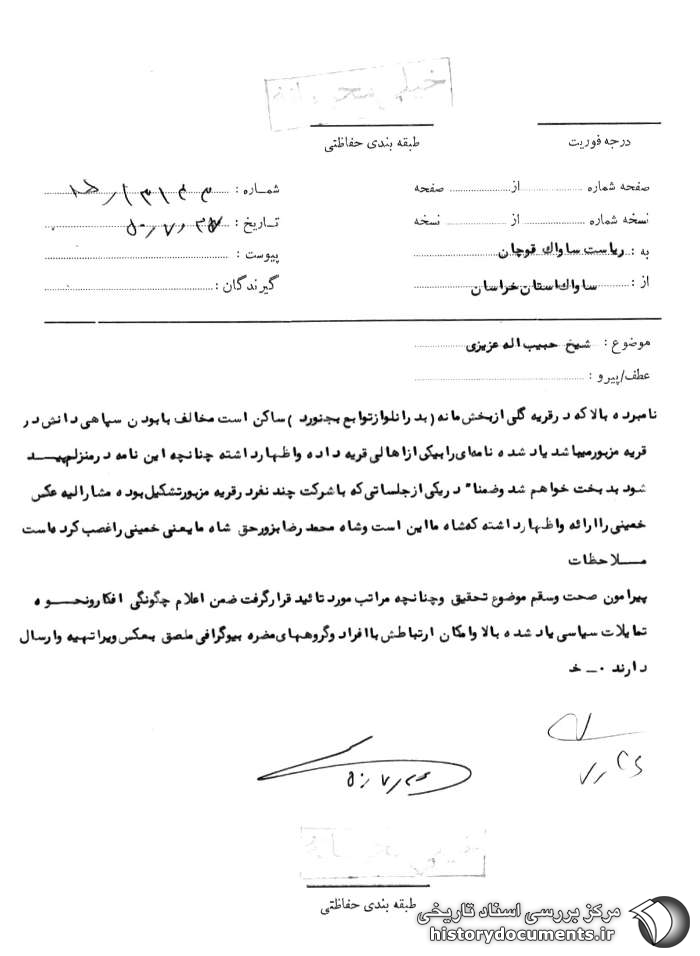 خیلی محرمانه
درجه فوریت
طبقه بندی حفاظتی
صفحه شماره ............ از ............ صفحه
شماره :
نسخه شماره ............ از ............ نسخه
تاریخ :
به : ریاست ساواک قوچان
پیوست :
از : ساواک استان خراسان
گیرندگان :
موضوع : شیخ حبیب اله عزیزی
عطف/پیرو :
نامبرده بالا که در قریه گلی از بخش مانه (بدرانلو از توابع بجنورد) ساکن است مخالف با بودن سپاهی دانش در
قریه مزبور میباشد یاد شده نامه‌ای را بیکی از اهالی قریه داده و اظهار داشته چنانچه این نامه در منزلم پیـــد
شود بدبخت خواهم شد وضمنا" در یکی از جلساتی که با شرکت چند نفر در قریه مزبور تشکیل بوده مشارالیه عکس
خمینی را ارائه و اظهار داشته که شاه ما این است و شاه محمد رضا بزور حق شاه ما یعنی خمینی را غصب کرده است
مـــلاحظات
پیرامون صحت وسقم موضوع تحقیق وچنانچه مراتب مورد تائید قرار گرفت ضمن اعلام چگونگی افکار ونحـــوه
تمایلات سیاسی یاد شده بالا وامکان ارتباطش با افراد وگروههای مضره بیوگرافی ملصق بعکس ویرا تهیه وارسال
دارند ۰ـ خ
۵۰/۷/۲۶
۷/۲۶
طبقه بندی حفاظتی
مرکز بررسی اسناد تاریخی
historydocuments.ir